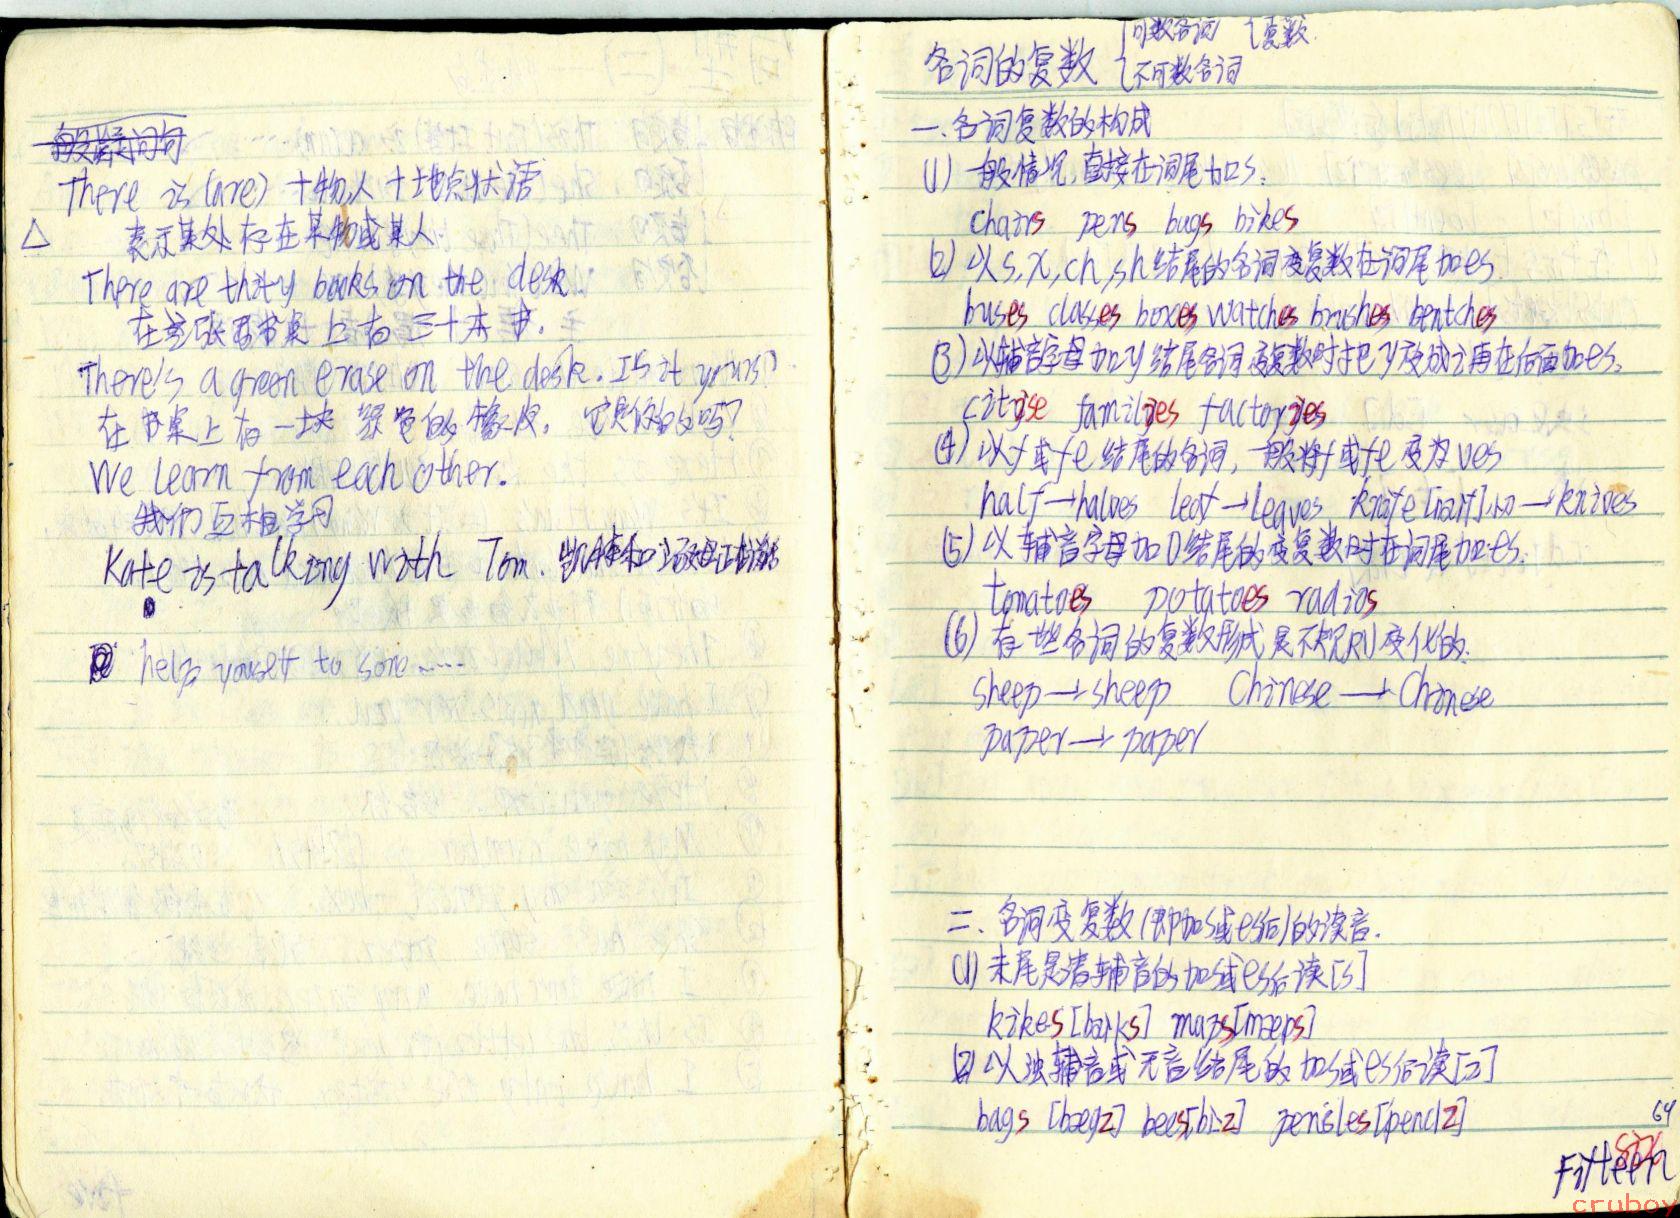 一般疑问句
There is (are) +物,人 +地点状语
△ 表示某处存在某物或某人
There are thity books on the desk
在这张书桌上有三十本书.
There's a green erase on the desk. Is it yours?
在书桌上有一块绿色的橡皮. 它是你的吗?
We learn from each other.
我们互相学习
Kate is talking with Tom. 凯特和汤姆正在谈话
help youself to some......
名词的复数 {可数名词 {复数
{不可数名词
一.名词复数的构成
(1) 一般情况,直接在词尾加s.
chairs pens bags bikes
(2) 以s,x,ch,sh结尾的名词变复数在词尾加es.
buses classes boxes watches brushes bentches
(3) 以辅音字母加y结尾名词变复数时把y变成i再在后面加es.
families factories
(4) 以f或fe结尾的名词,一般将f或fe变为ves
half→halves leaf→leaves knife [naif] 小刀→knives
(5) 以辅音字母加O结尾的变复数时在词尾加es.
tomatoes potatoes radios
(6) 有些名词的复数形式是不规则变化的.
sheep→sheep Chinese→Chinese
paper→paper
二.名词变复数(即加s或es后)的读音.
(1) 末尾是清辅音的加s或es后读[s]
kikes [baiks] maps[mæps]
(2) 以浊辅音或元音结尾的加s或es后读[z]
bags [bægz] bees[bi:z] pensles[penclz]
64
Fifteen
cruboy